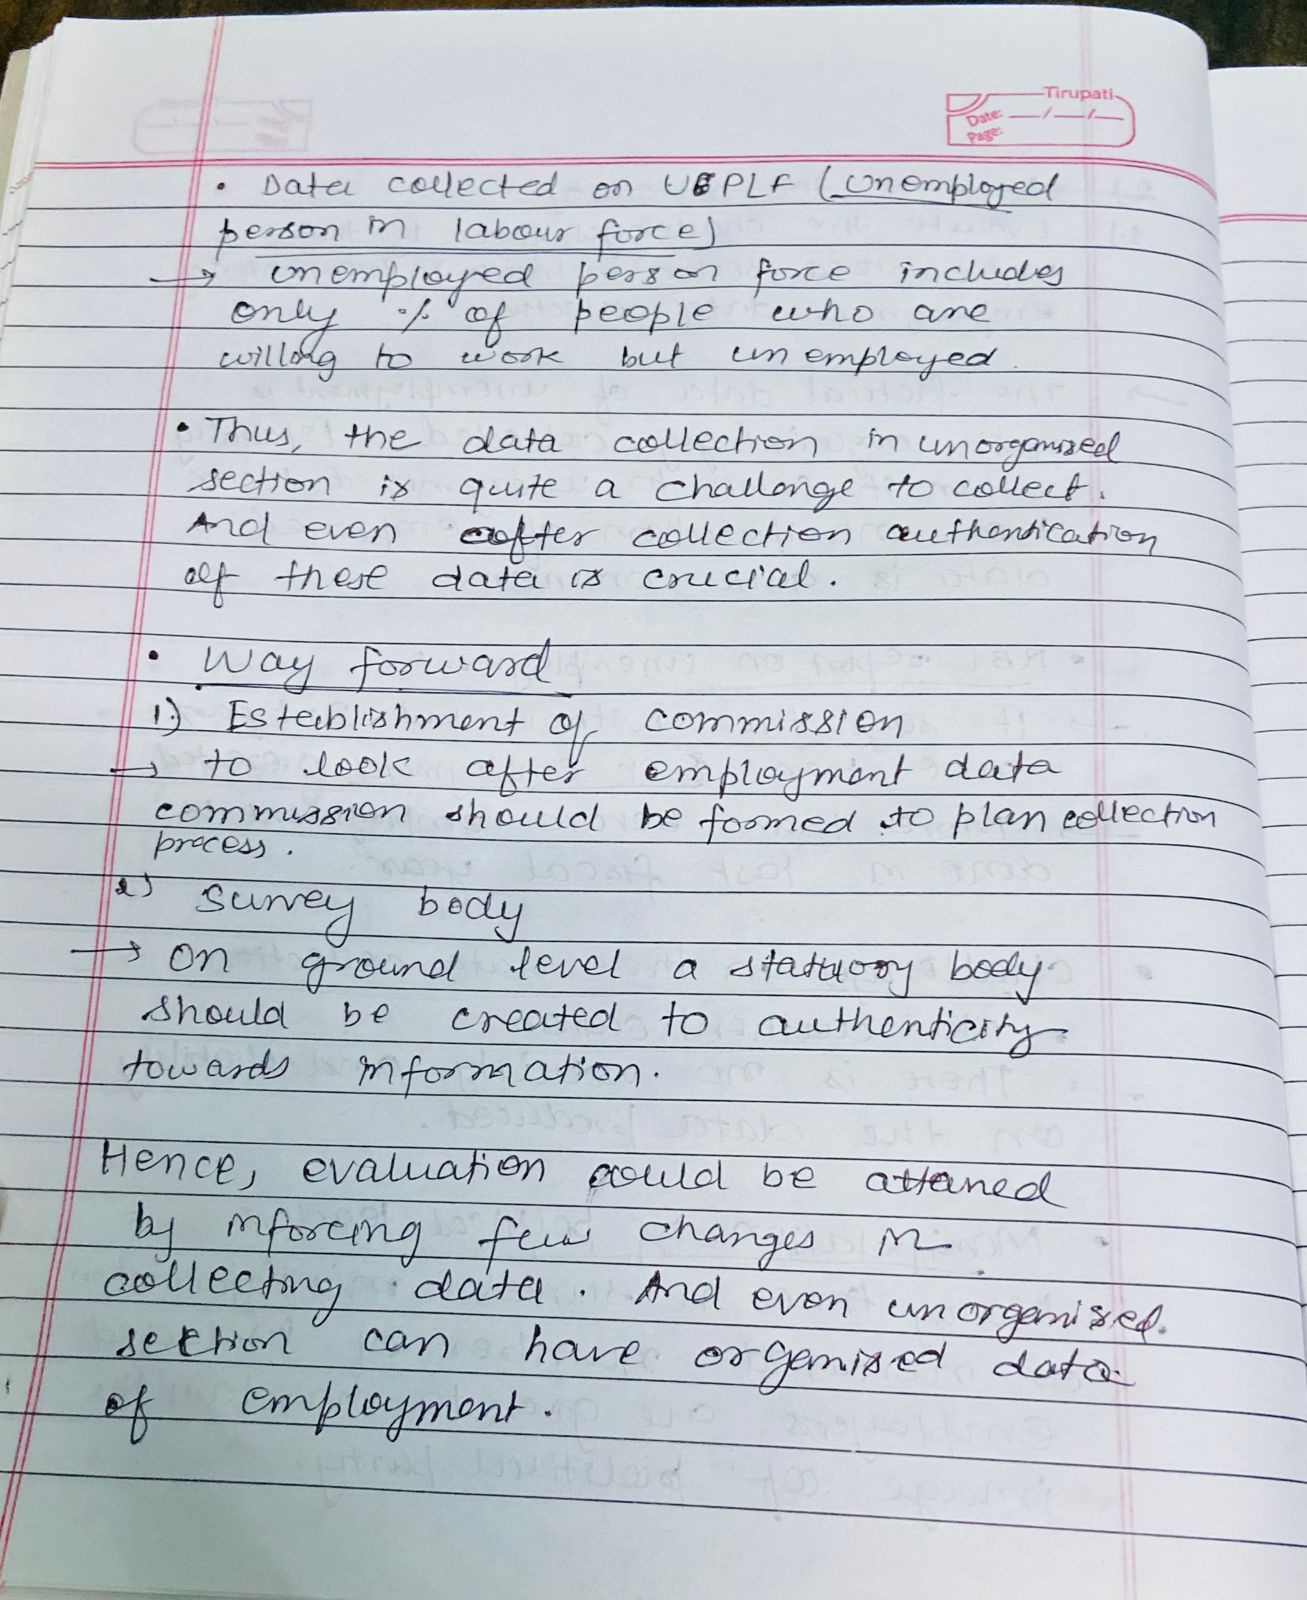 Tirupati
Date: — / — / —
Page:
• Data collected on UEPLF (unemployed
person in labour force)
→ unemployed person force includes
only % of people who are
willing to work but unemployed.
• Thus, the data collection in unorganised
section is quite a challange to collect.
And even after collection authentication
of these data is crucial.
• Way forward
1.) Establishment of commission
→ to look after employment data
commission should be formed to plan collection
process.
2) Survey body
→ on ground level a statuory body
should be created to authenticity
towards information.
Hence, evaluation could be attained
by inforcing few changes in
collecting data. And even unorganised
section can have organised data
of employment.